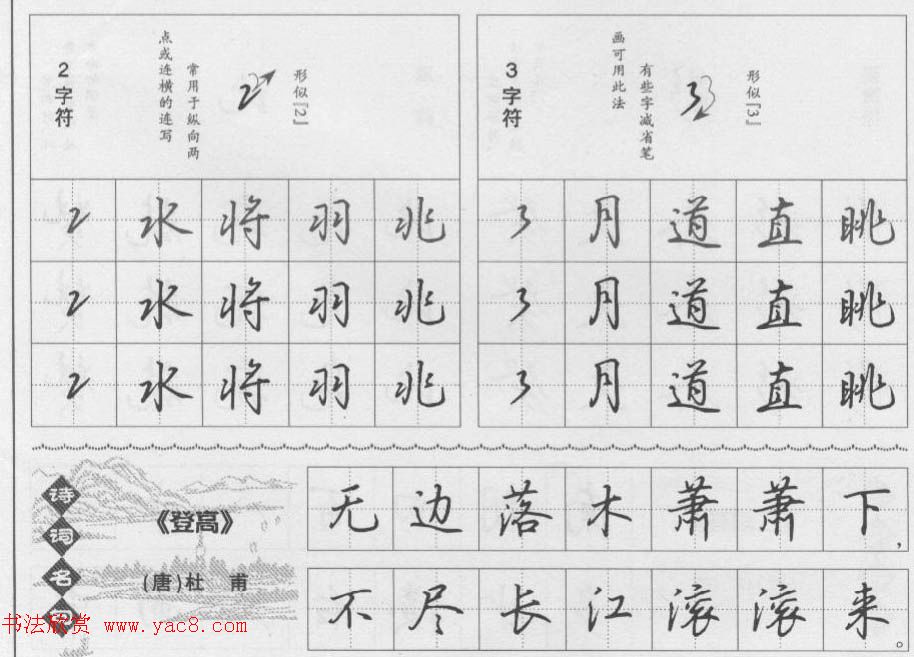 2字符
形似『2』
常用于纵向两
点或连横的连写
3字符
形似『3』
有些字减省笔
画可用此法
2 水 将 羽 兆
3 月 道 直 眺
2 水 将 羽 兆
3 月 道 直 眺
2 水 将 羽 兆
3 月 道 直 眺
诗词名
《登高》
(唐)杜 甫
无边落木萧萧下,
不尽长江滚滚来。
书法欣赏 www.yac8.com